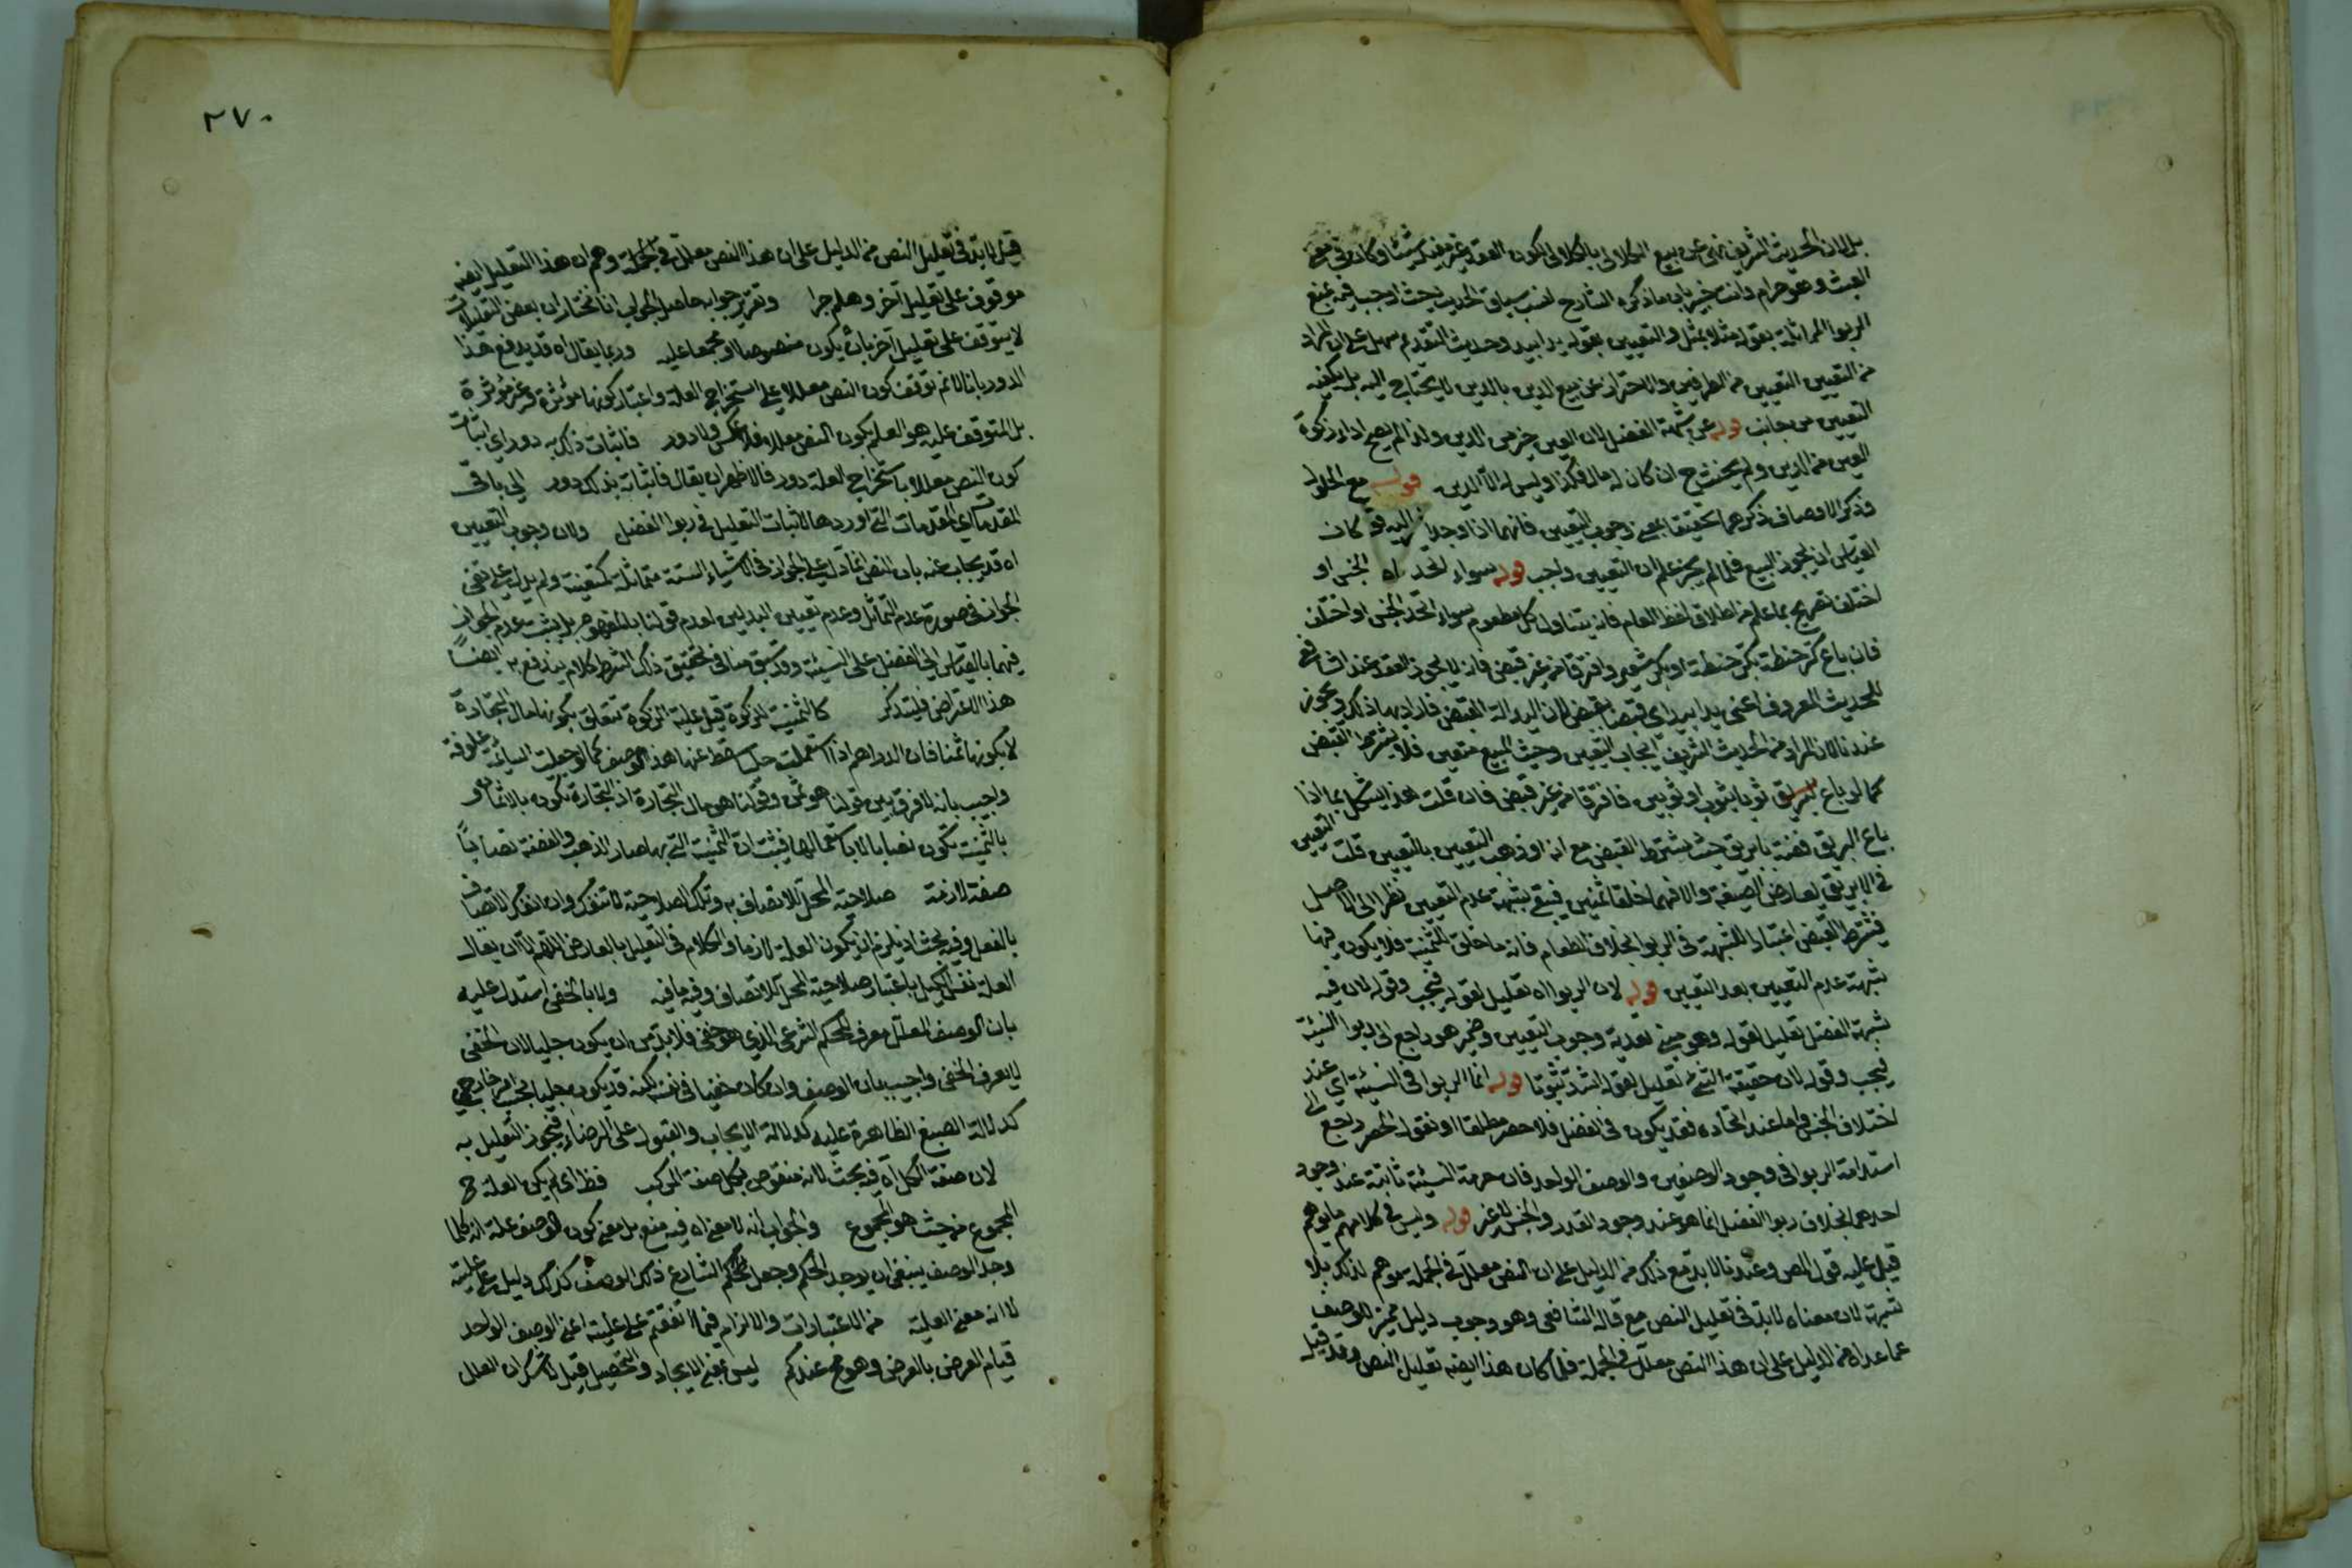 بل لان الحديث الشريف نهى عن بيع الكالئ بالكالئ لكون العقد غير مفيد شيئا وكان في معنى
العبث وهو حرام وانت خبير بان ما ذكره الشارح انسب بسياق الحديث حيث اوجب فيه لمنع
الربوا المماثلة بقوله مثلا بمثل والتعيين بقوله يدا بيد وحديث النقد على ان المراد
من التعيين التعيين من الطرفين والاحتراز عن بيع الدين بالدين لا يحتاج اليه بل يكفيه
التعيين من جانب قوله عن شبهة الفضل لان العين خير من الدين ولذا لم يصح اداء زكوة
العين من الدين ولم يحنث ح ان كان له مال فكذا وليس له الا الدين قوله مع الحلول
وذكر الاوصاف ذكرهما تحقيقا لمعنى وجوب التعيين فانهما اذا وجدا كان
القياس ان يجوز البيع فلما لم يجز علم ان التعيين واجب قوله سواء اتحد اه الجنس او
اختلف تصريح بما علم من اطلاق لفظ الطعام فانه يتناول كل مطعوم سواء اتحد الجنس او اختلف
فان باع كر حنطة بكر حنطة او بكر شعير وافترقا من غير قبض فانه لا يجوز العقد عند الشافعي
للحديث المعروف اعني يدا بيد اي قبضا بقبض لان اليد الة القبض فاراد بها ذلك ويجوز
عندنا لان المراد من الحديث الشريف ايجاب التعيين وحيث المبيع متعين فلا يشترط القبض
كما لو باع ثوبا بثوب او ثوبين فافترقا من غير قبض فان قلت هذا يشكل بما اذا
باع ابريق فضة بابريق حيث يشترط القبض مع انه او ذهب التعيين بالتعيين قلت التعيين
في الابريق يعارض الصيغة والا فهما خلقا ثمنين فيبقى شبهة عدم التعيين نظرا الى الاصل
فشرط القبض اعتبارا للشبهة في الربوا بخلاف الطعام فانه ما خلق للثمنية فلا يكون فيها
شبهة عدم التعيين بعد التعيين قوله لان الربوا اه تعليل لقوله فيجب وقوله لان فيه
شبهة الفضل تعليل لقوله وهو مبني تعدية وجوب التعيين وضمير هو راجع الى ربوا النسيئة
فيجب وقوله لان حقيقة الشيء تعليل لقوله اشد ثبوتا قوله انما الربوا في النسيئة اي عند
اختلاف الجنس واما عند اتحاده فقد يكون في الفضل فلا حصر مطلقا او نقول الحصر راجع الى
استدامة الربوا في وجود الوصفين والوصف الواحد فان حرمة النسيئة ثابتة عند وجود
احدهما بخلاف ربوا الفضل انما هو عند وجود القدر والجنس لا غير قوله وليس في كلامهم ما يوهم
قيل عليه قول المص وعندنا لا بد مع ذلك من الدليل على ان النص معلل في الجملة موهم لذلك بلا
شبهة لان معناه لا بد في تعليل النص مع ما قاله الشافعي وهو وجوب دليل مميز للوصف
عما عداه من الدليل على ان هذا النص معلل في الجملة فلما كان هذا ايضا تعليل النص وقد قيل
٢٧٠
قيل لا بد في تعليل النص من الدليل على ان هذا النص معلل في الجملة وهم ان هذا التعليل ايضا
موقوف على تعليل آخر وهلم جرا وتقرير جوابه حاصل الجواب انا نختار ان بعض التعليلات
لا يتوقف على تعليل آخر بان يكون منصوصا او مجمعا عليه وربما يقال انه قد يدفع هذا
الدور بانا لا نم توقف كون النص معللا على استخراج العلة واعتبار كونها مؤثرة او غير مؤثرة
بل المتوقف عليه هو العلم بكون النص معللا فلا عكس ولا دور فاثبات ذلك به دور اي اثبات
كون النص معللا باستخراج العلة دور فالاظهر ان يقال فاثباته بذلك دور الى باقي
المقدمات اي المقدمات التي اوردها لاثبات التعليل في ربوا الفضل ولان وجوب التعيين
اه قد يجاب عنه بان النص انما دل على الجواز في الاشياء الستة متماثلة متعينة ولم يدل على نفي
الجواز في صورة عدم التماثل وعدم تعيين البدلين لعدم قولنا بالمفهوم بل يثبت عدم الجواز
فيهما بالقياس الى الفضل على النسيئة وقد سبق منا في تحقيق ذلك الشرط كلام يندفع به ايضا
هذا الاعتراض فليتذكر كالثمنية للزكوة قيل علية الزكوة تتعلق بكونها مال التجارة
لا بكونها ثمنا فان الدراهم اذا استعملت حليا سقط عنها هذا الوصف كما لو جعلت السائمة علوفة
واجيب بانه لا فرق بين قولنا هو ثمن وقولنا هو مال التجارة اذ التجارة تكون بالاثمان و
بالثمنية تكون نصابا لا باستعمالها فيثبت ان الثمنية التي بها صار الذهب والفضة نصابا
صفة لازمة صلاحية المحل للاتصاف به وتلك الصلاحية لا تنفك وان انفك الاتصاف
بالفعل وفيه بحث اذ يلزم ان يكون العلة لازما والكلام في التعليل بالعارض اللهم الا ان يقال
العلة نفس الكيل باعتبار صلاحية المحل للاتصاف وفيه ما فيه ولا بالخفي استدل عليه
بان الوصف المعلل معرف للحكم الشرعي الذي هو خفي فلا بد من ان يكون جليا لان الخفي
لا يعرف الخفي واجيب بان الوصف وان كان خفيا في نفسه لكنه قد يكون جليا بحسب امر خارجي
كدلالة الصيغ الظاهرة عليه كدلالة الايجاب والقبول على الرضاء فيجوز التعليل به
لان صفة الكل اه فيه بحث لانه منقوض بكل صفة المركب فظ اي لم يكن العلة ح
المجموع من حيث هو المجموع والجواب انه لا معنى اه فيه منع بل معنى كون الوصف علة انه كلما
وجد الوصف ينبغي ان يوجد الحكم وجعل حكم الشارع ذلك الوصف كذلك دليل على علية
لا انه معنى العلية من الاعتبارات والالزام فيما اتفقتم على علية اعني الوصف الواحد
قيام العرض بالعرض وهو مح عندكم ليس بمعنى الايجاد والتحصيل قيل لا شك ان العلل